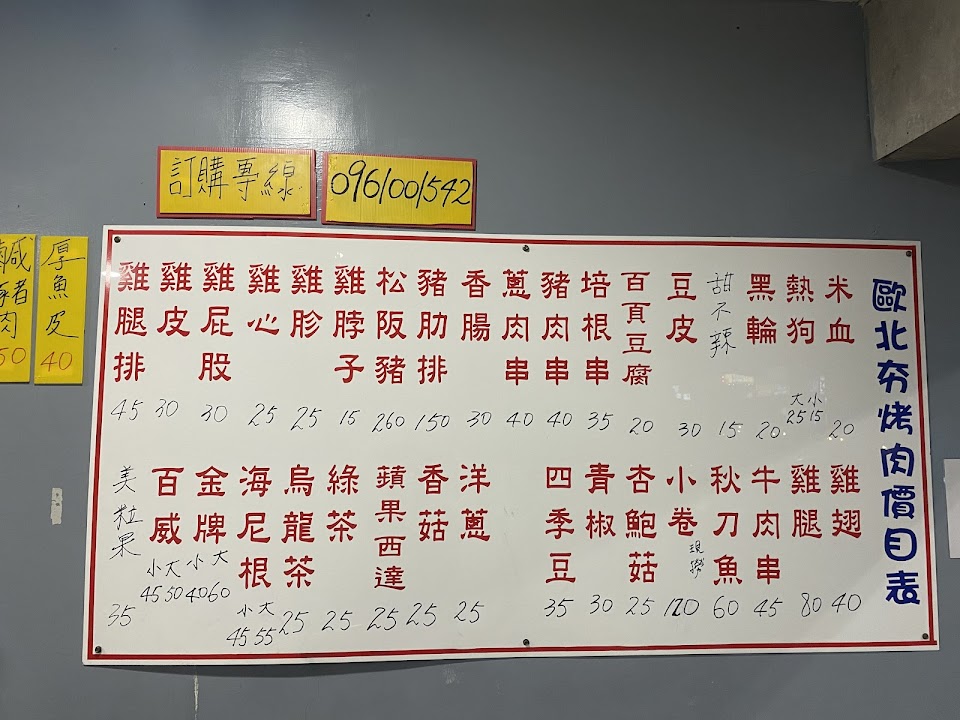 訂購專線
0961001542
歐北夯烤肉價目表
米血 20
熱狗 大25 小15
黑輪 20
甜不辣 15
豆皮 30
百頁豆腐 20
培根串 35
豬肉串 40
蔥肉串 40
香腸 30
豬肋排 150
松阪豬 260
雞脖子 15
雞胗 25
雞心 25
雞屁股 30
雞皮 30
雞腿排 45
雞翅 40
雞腿 80
牛肉串 45
秋刀魚 60
小卷 現撈 120
杏鮑菇 25
青椒 30
四季豆 35
洋蔥 25
香菇 25
蘋果西達 25
綠茶 25
烏龍茶 25
海尼根 小45 大55
金牌 小40 大60
百威 小45 大50
美粒果 35
厚魚皮 40
鹹豬肉 50